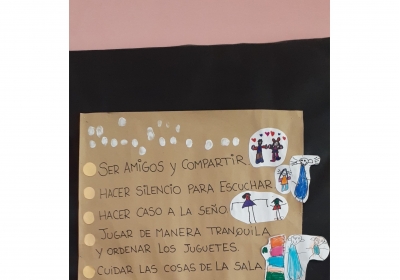 SER AMIGOS Y COMPARTIR
HACER SILENCIO PARA ESCUCHAR
HACER CASO A LA SEÑO
JUGAR DE MANERA TRANQUILA
Y ORDENAR LOS JUGUETES
CUIDAR LAS COSAS DE LA SALA